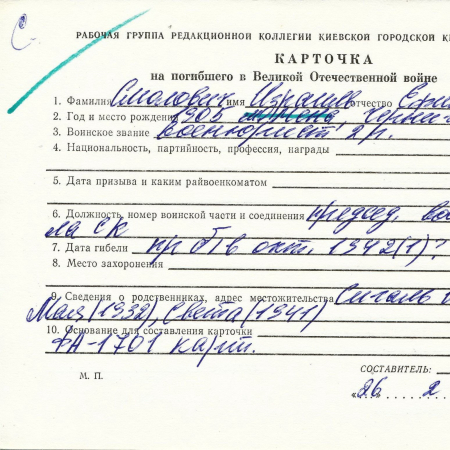 С.
РАБОЧАЯ ГРУППА РЕДАКЦИОННОЙ КОЛЛЕГИИ КИЕВСКОЙ ГОРОДСКОЙ
КАРТОЧКА
на погибшего в Великой Отечественной войне
1. Фамилия Смолович имя Израиль отчество
2. Год и место рождения 1905
3. Воинское звание военюрист 2 р.
4. Национальность, партийность, профессия, награды
5. Дата призыва и каким райвоенкоматом
6. Должность, номер воинской части и соединения председ. 
ла СК
7. Дата гибели пр б/в окт. 1942(1)?
8. Место захоронения
9. Сведения о родственниках, адрес местожительства
Майя (1932), Света (1941)
10. Основание для составления карточки
ФА-1701 карт.
СОСТАВИТЕЛЬ:
М. П.
«26 2